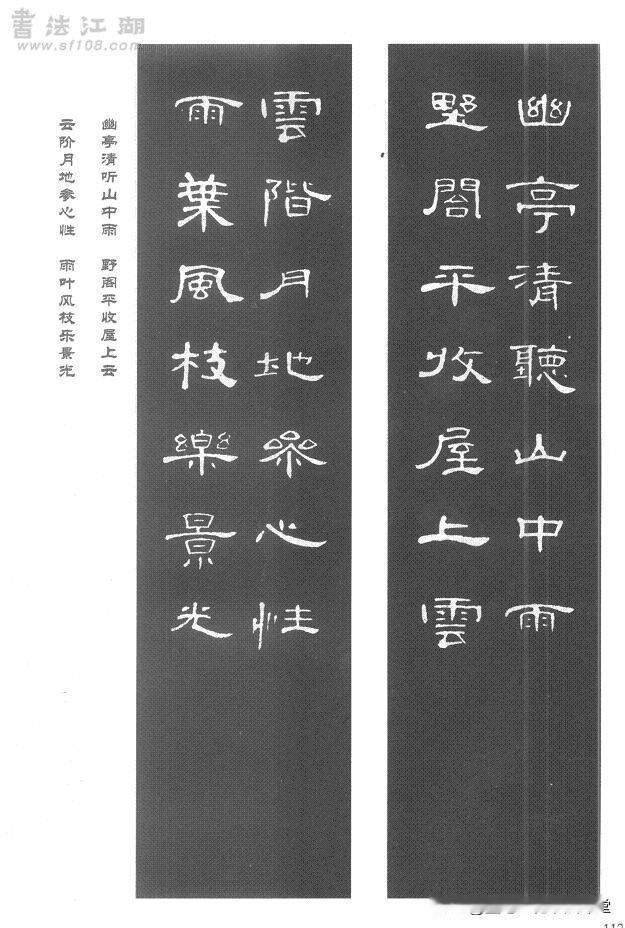 書法江湖
www.sf108.com
幽亭清聽山中雨
野閣平收屋上雲
雲階月地參心性
雨葉風枝樂景光
幽亭清听山中雨 野阁平收屋上云
云阶月地参心性 雨叶风枝乐景光